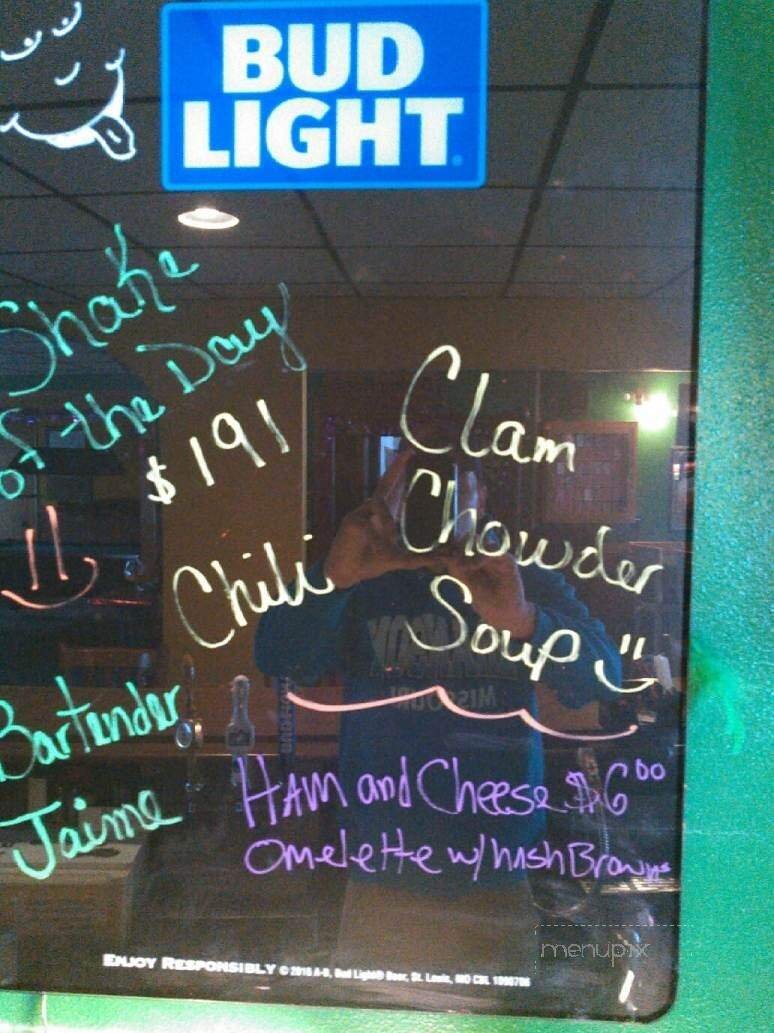 BUD
LIGHT
Shake
of the Day
$191
Clam
Chowder
Soup
Chili
Bartender
Jaime
HAM and Cheese $600
Omelette w/ hash Browns
menupix
ENJOY RESPONSIBLY © 2016 A-B, Bud Light® Beer, St. Louis, MO